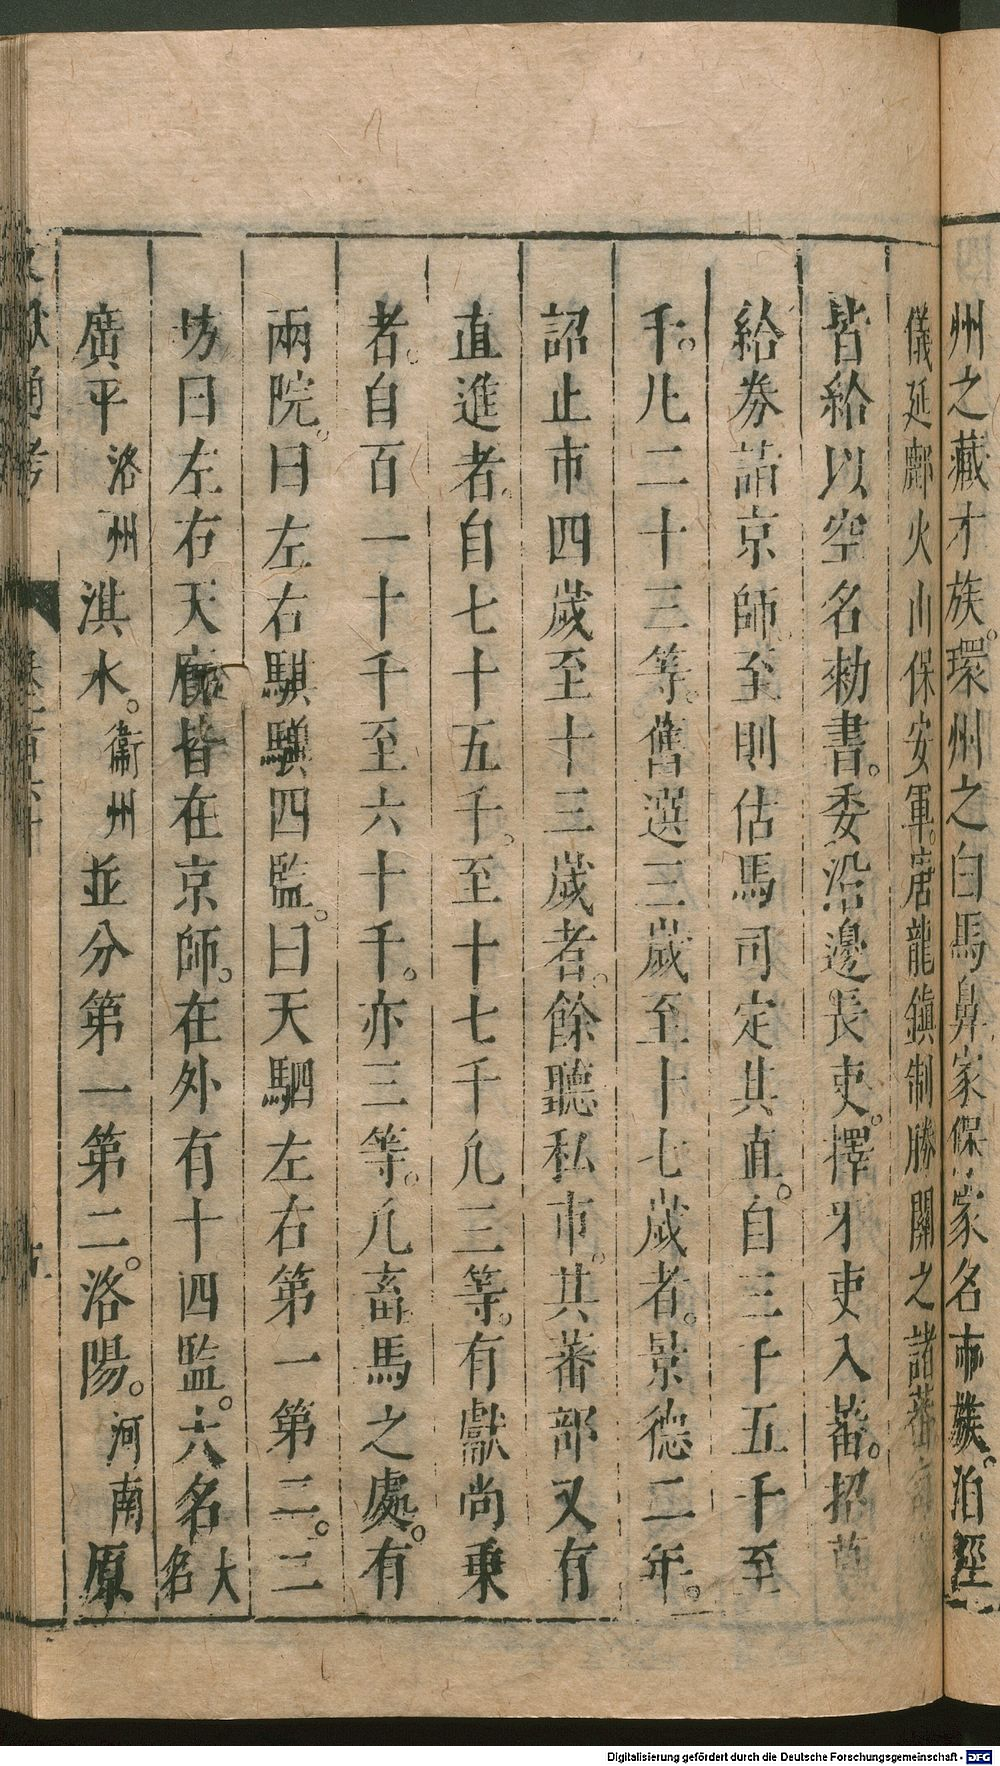 州之藏才族。環州之白馬鼻家保家名市族。洎涇
儀延鄜火山保安軍。唐龍鎮制勝關之諸蕃
皆給以空名勑書。委沿邊長吏。擇牙吏入蕃。招
給券詣京師。至則估馬司定其直。自三千五千至
千。凡二十三等。舊選三歲至十七歲者。景德二年。
詔止市四歲至十三歲者。餘聽私市。其蕃部又有
直進者。自七十五千。至十七千凡三等。有獻尚乗
者。自百一十千至六十千。亦三等。凡畜馬之處。有
兩院。曰左右騏驥四監。曰天駟左右第一第二。二
坊曰左右天廄皆在京師。在外有十四監。大名大名
廣平洺州淇水。衞州並分第一第二。洛陽。河南原
文獻通考 卷一百六十 五
Digitalisierung gefördert durch die Deutsche Forschungsgemeinschaft - DFG